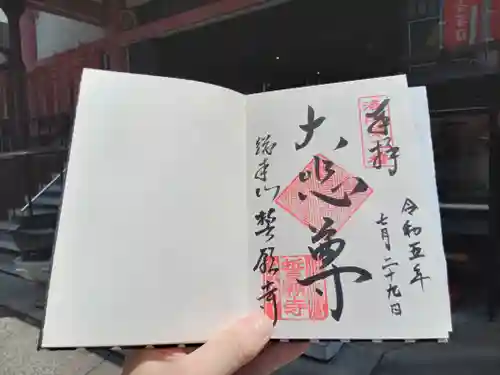 奉拝
令和五年
七月二十九日
大悲尊
総本山 誓願寺
誓願寺